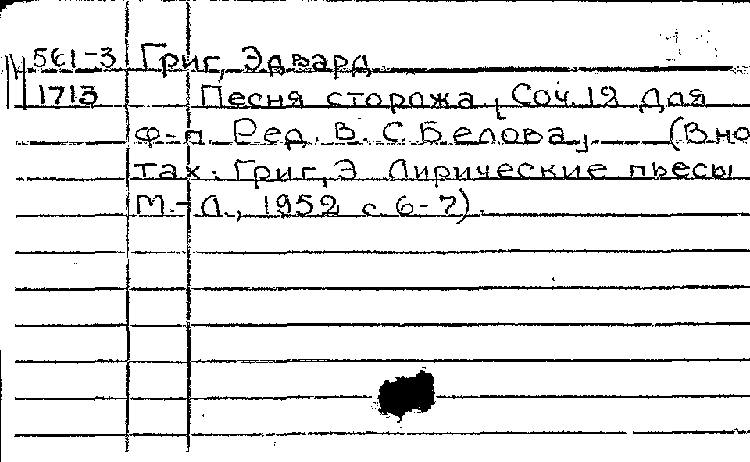 М 561-3 Григ, Эдвард
1713 Песня сторожа [Соч. 12 Для
ф-п. Ред. В. С. Белова] (В но
тах: Григ, Э Лирические пьесы
М.-Л., 1952 с. 6-7).